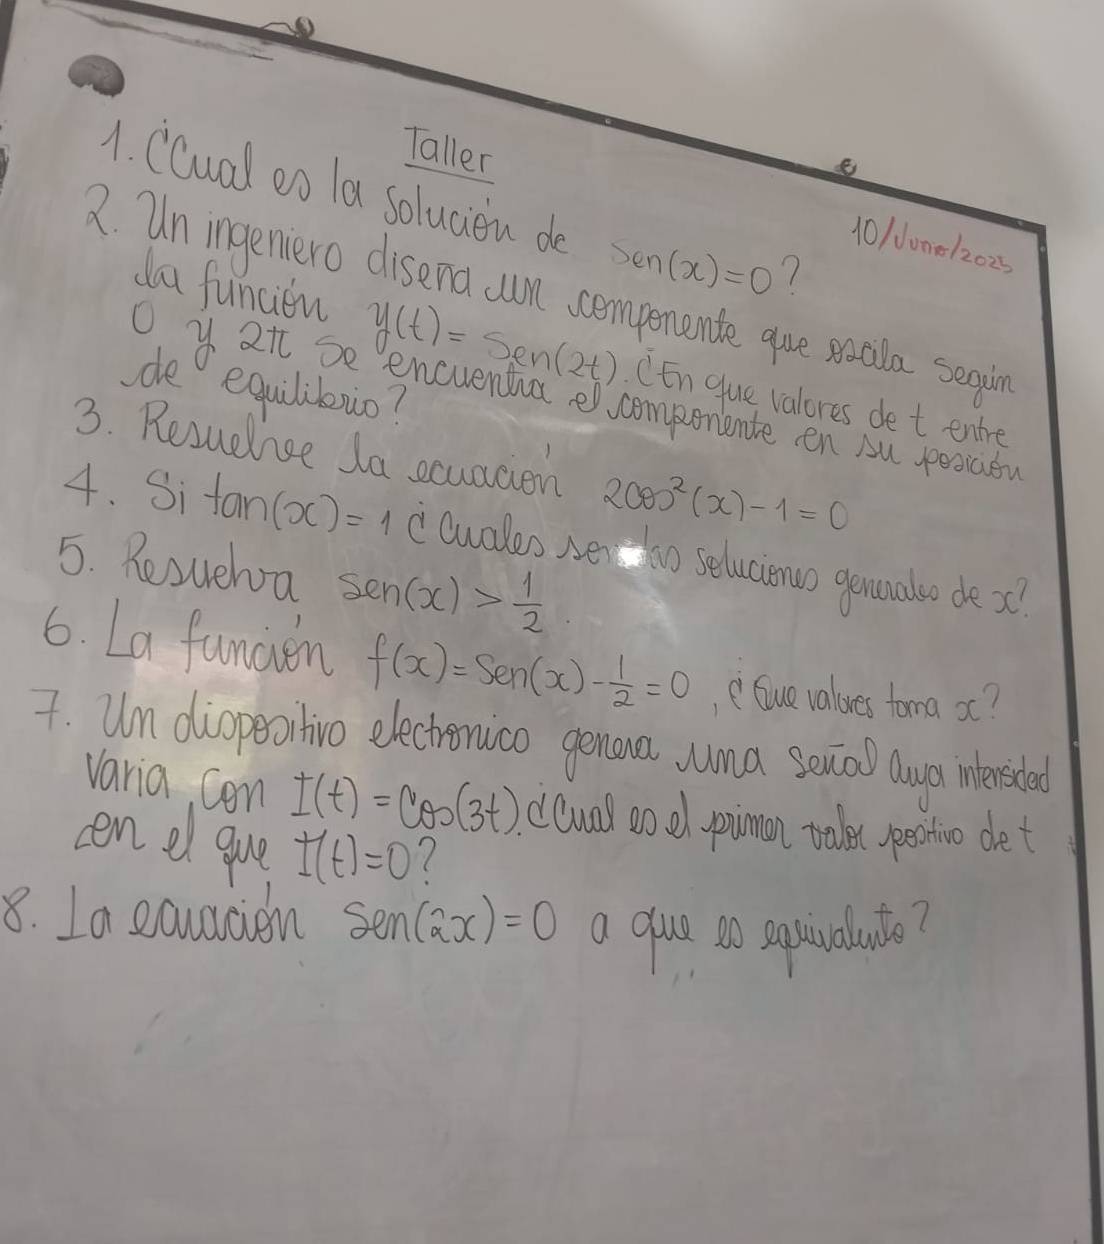 Taller
10/Junio/2025
1. ¿Cual es la solución de sen(x)=0?
2. Un ingeniero diseña un componente que oscila según
la función y(t)=Sen(2t). ¿En que valores de t entre
0 y 2π se encuentra el componente en su posición
de equilibrio?
3. Resuelvee la ecuación 2cos²(x)-1=0
4. Si tan(x)=1 ¿Cuales son las soluciones generales de x?
5. Resuelva sen(x) > 1/2.
6. La función f(x)=Sen(x)-1/2=0, ¿Que valores toma x?
7. Un dispositivo electronico genera una señal cuya intensidad
varia con I(t)=Cos(3t). ¿Cual es el primer valor positivo de t
en el que I(t)=0?
8. La ecuación Sen(2x)=0 a que es equivalente?